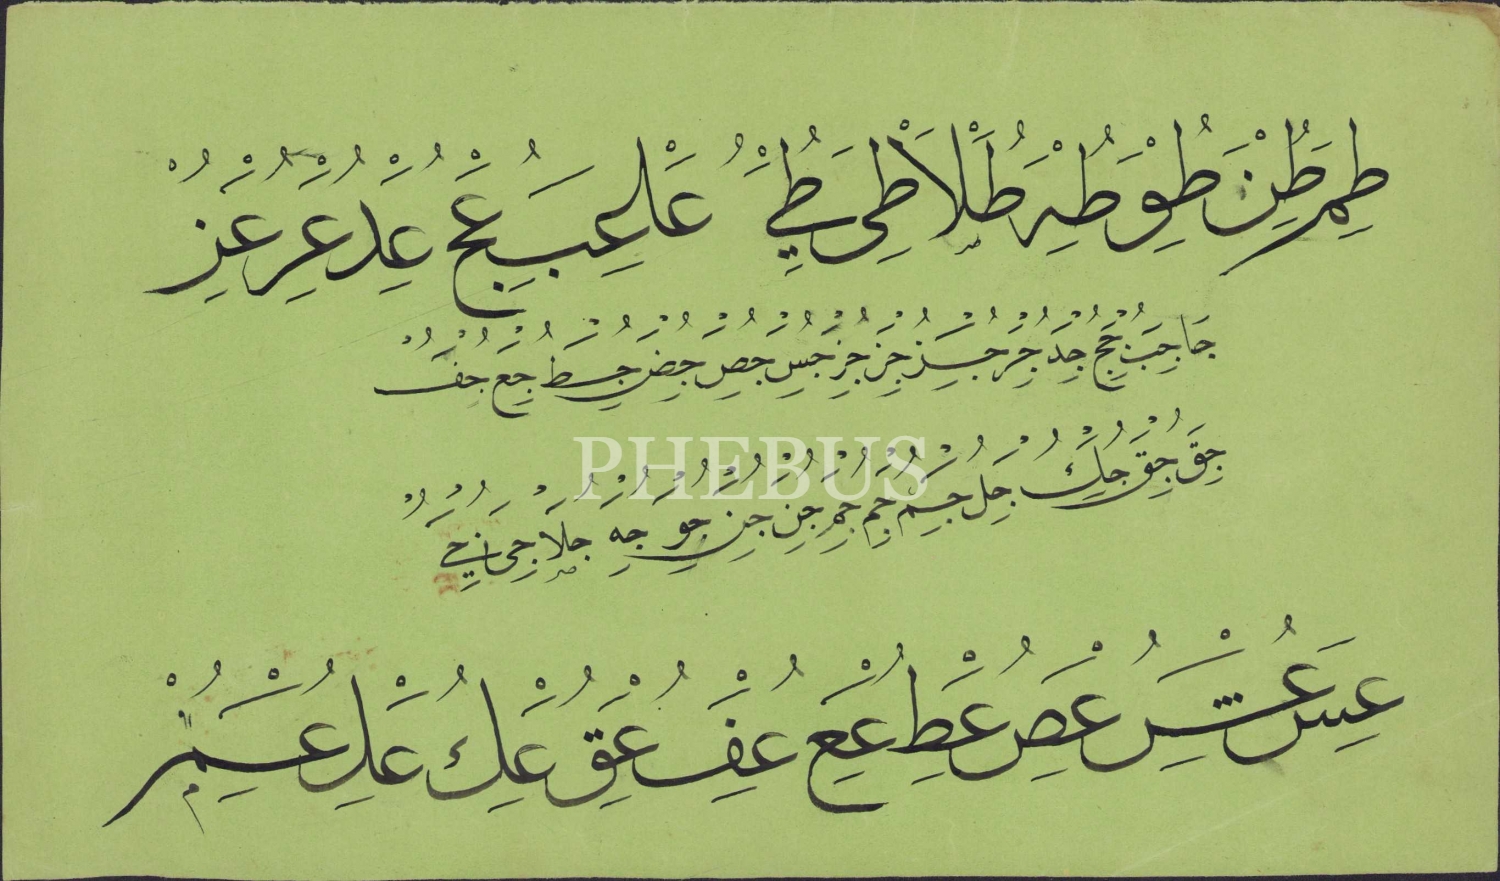 طم طن طو طه طلا طى طي عا عب عج عد عر عز
جا جب جج جد جر جز جر جز جس جص جض جط جع جف
جق جق جك جل جم جم جم جن جن جو جه جلا جى جي
PHEBUS
عس عش عص عط عع عف عق عك عل عم